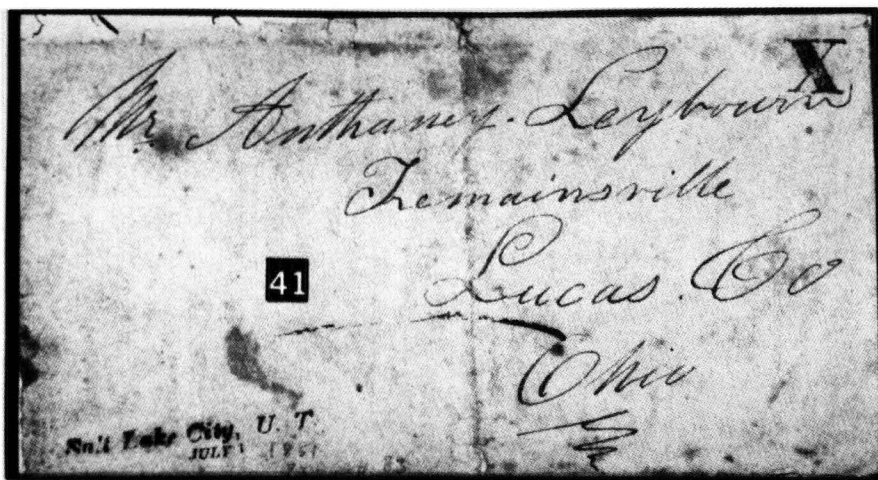 X
Mr Anthaney. Leybourn
Tremainsville
41
Lucas. Co
Ohio
Salt Lake City, U. T.
JULY 1 1851